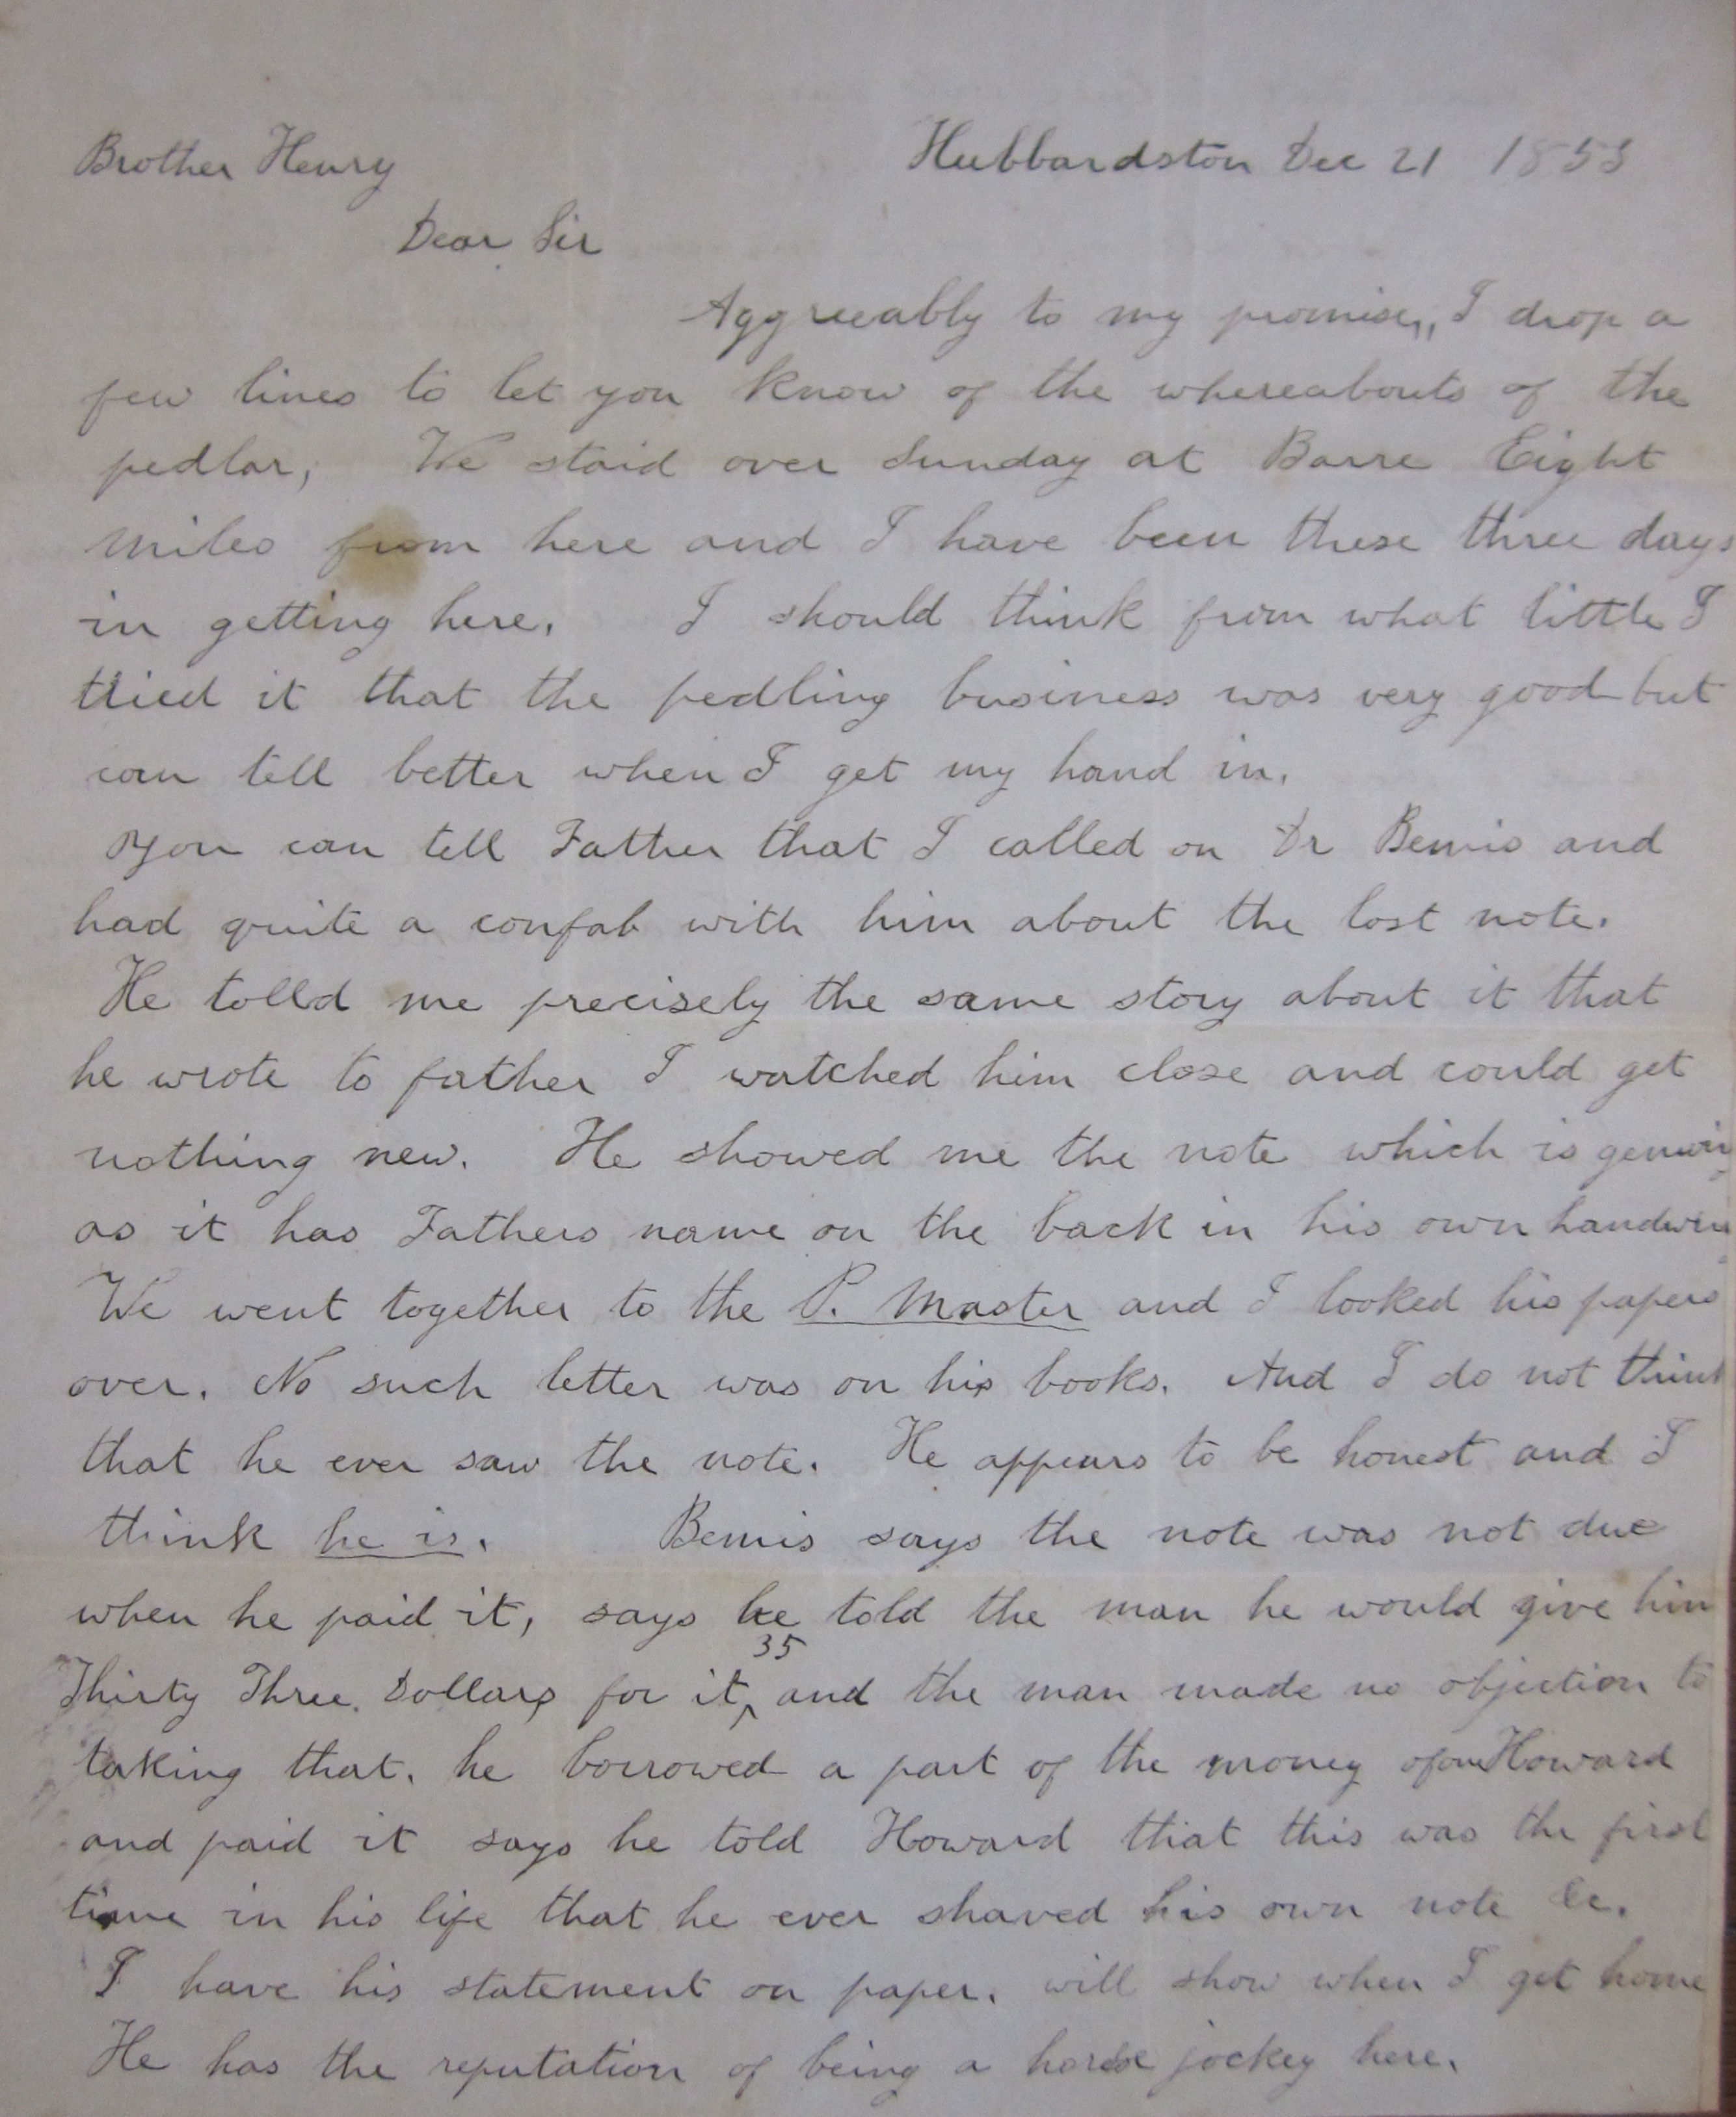 Brother Henry Hubbardston Dec 21 1853
Dear Sir
Aggreeably to my promise,, I drop a
few lines to let you know of the whereabouts of the
pedlar, We staid over Sunday at Barre Eight
miles from here and I have been these three days
in getting here. I should think from what little I
tried it that the pedling business was very good but
can tell better when I get my hand in.
You can tell Father that I called on Dr Bemis and
had quite a confab with him about the lost note.
He tolld me precisely the same story about it that
he wrote to father I watched him close and could get
nothing new. He showed me the note which is genuin
as it has Fathers name on the back in his own handwri
We went together to the P. Master and I looked his papers
over. No such letter was on his books. And I do not think
that he ever saw the note. He appears to be honest and I
think he is. Bemis says the note was not due
when he paid it, says he told the man he would give him
35
Thirty Three Dollars for it, and the man made no objection to
taking that. he borrowed a part of the money of Howard
and paid it says he told Howard that this was the first
time in his life that he ever shaved his own note &c.
I have his statement on paper. will show when I get home
He has the reputation of being a horse jockey here.